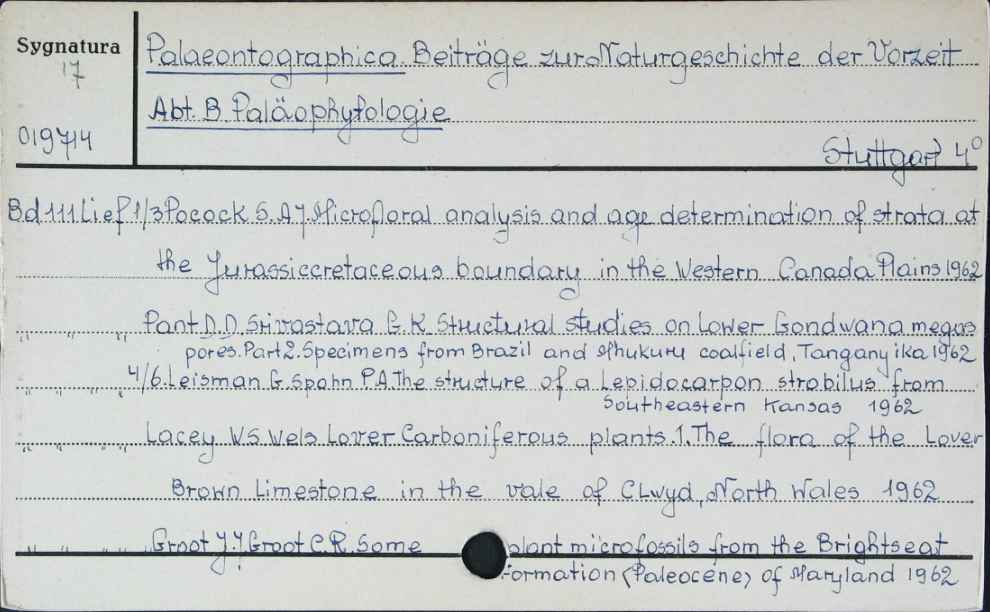 Sygnatura
17
019714
Palaeontographica. Beiträge zur Naturgeschichte der Vorzeit
Abt. B. Paläophytologie
Stuttgart 4°
Bd 111 Lief 1/3 Pocock S. A. J. Microfloral analysis and age determination of strata at
the Jurassiccretaceous boundary in the Western Canada Plains 1962
" " " Pant D.D. Srivastava G.K. Structural studies on Lower Gondwana megas
pores. Part 2. Specimens from Brazil and Mhukuru coalfield, Tanganyika 1962
" " " 4/6. Leisman G. Spohn P.A. The structure of a Lepidocarpon strobilus from
Southeastern Kansas 1962
" " " Lacey W.S. Wels Lover Carboniferous plants. 1. The flora of the Lover
Brown Limestone in the vale of Clwyd, North Wales 1962
" " " Groot J. J. Groot C.R. Some plant microfossils from the Brightseat
Formation (Paleocene) of Maryland 1962